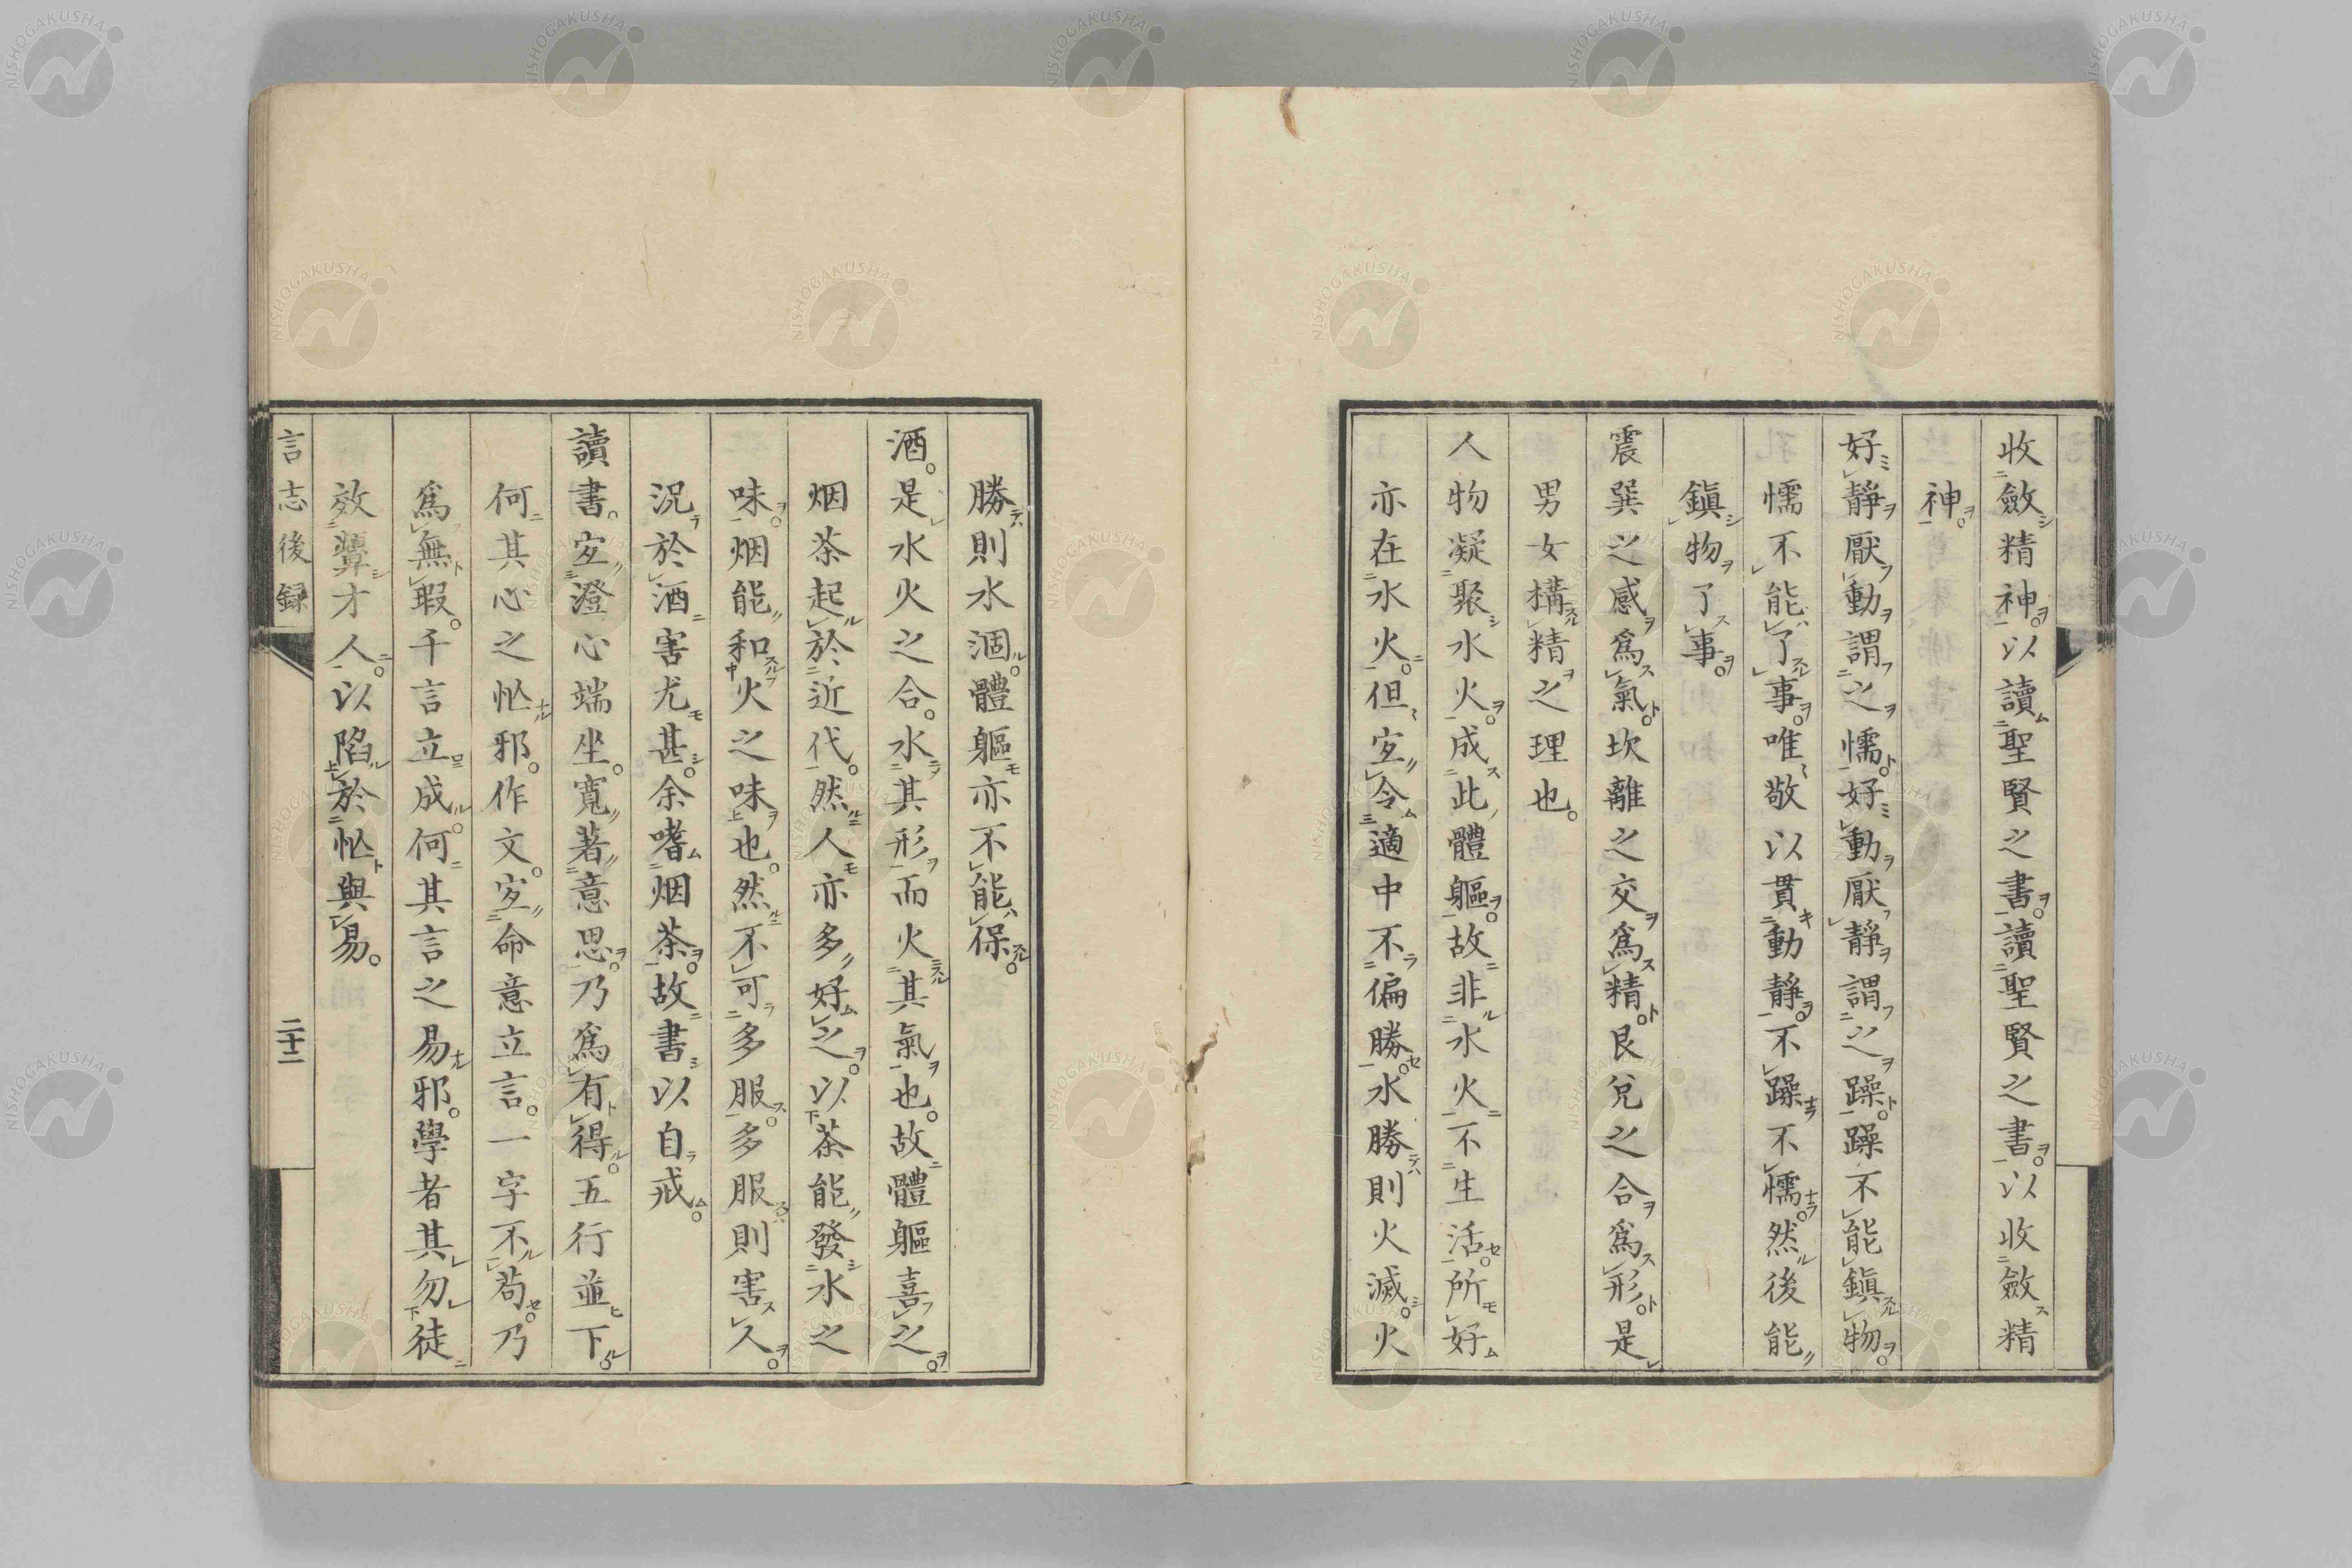 收斂精神。以讀聖賢之書。讀聖賢之書。以收斂精
神。
好靜厭動謂之懦。好動厭靜謂之躁。躁不能鎭物。
懦不能了事。唯敬以貫動靜。不躁不懦。然後能
鎭物了事。
震巽之感爲氣。坎離之交爲精。艮兌之合爲形。是
男女構精之理也。
人物凝聚水火。成此體軀。故非水火不生活。所好
亦在水火。但宐令適中不偏勝。水勝則火滅。火
勝則水涸。體軀亦不能保。
酒。是水火之合。水其形而火其氣也。故體軀喜之。
烟茶起於近代。然人亦多好之。以茶能發水之
味。烟能和火之味也。然不可多服。多服則害人。
況於酒害尤甚。余嗜烟茶。故書以自戒。
讀書。宐澄心端坐。寬著意思。乃爲有得。五行並下。
何其心之忙邪。作文。宐命意立言。一字不苟。乃
爲無瑕。千言立成。何其言之易邪。學者其勿徒
效顰才人。以陷於忙與易。
言志後録
二十二
NISHOGAKUSHA